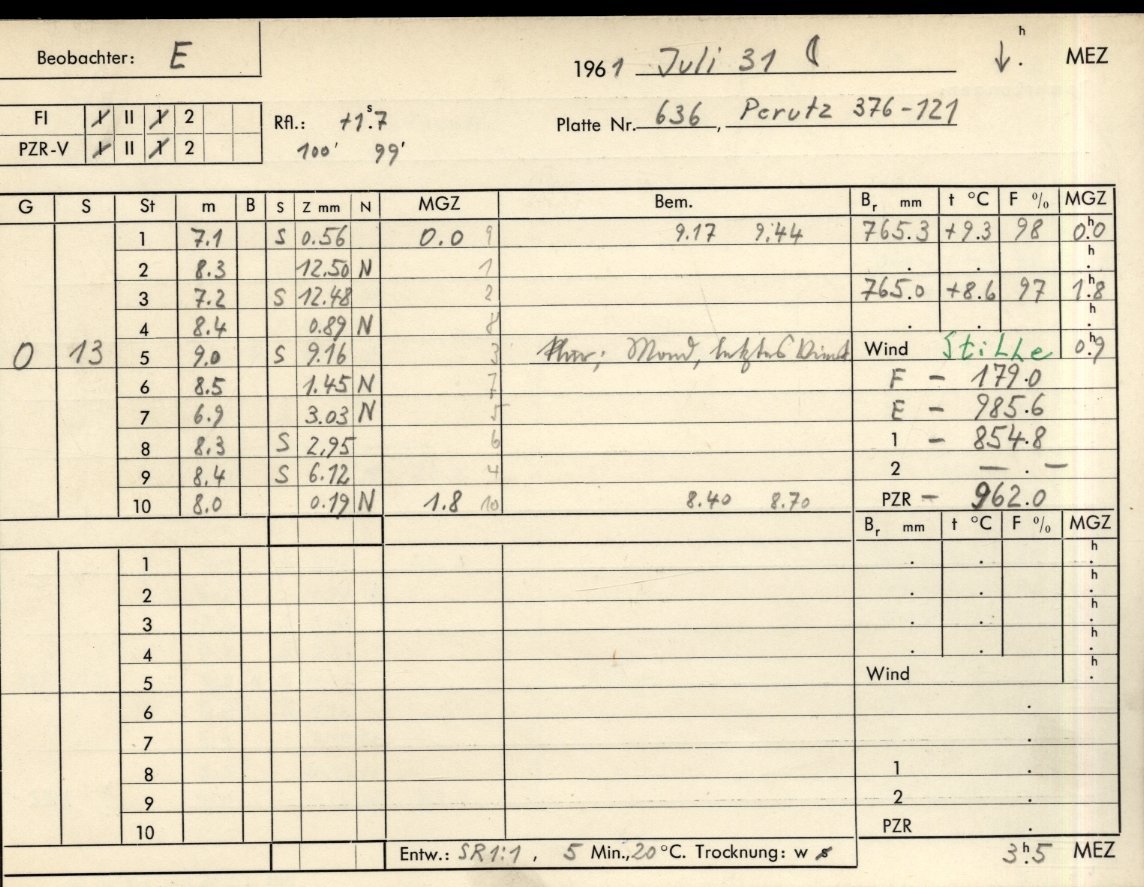 Beobachter: E
1961 Juli 31 ☾ ↓. h MEZ
FI I II 1 2
PZR-V I II 1 2
Rfl.: +1ˢ.7
100' 99'
Platte Nr. 636, Perutz 376-121
G S St m B S Z mm N MGZ Bem. Bᵣ mm t °C F % MGZ
1 7.1 S 0.56 0.0 9 9.17 9.44 765.3 +9.3 98 0ʰ.0
2 8.3 12.50 N 1 . . ʰ.
3 7.2 S 12.48 2 765.0 +8.6 97 1ʰ.8
4 8.4 0.89 N 8 . . ʰ.
0 13 5 9.0 S 9.16 3 Mond, letztes Wind Stille 0ʰ.9
6 8.5 1.45 N 7 F - 179.0
7 6.9 3.03 N 5 E - 985.6
8 8.3 S 2.95 6 1 - 854.8
9 8.4 S 6.12 4 2 - . -
10 8.0 0.19 N 1.8 10 8.40 8.70 PZR - 962.0
Bᵣ mm t °C F % MGZ
1 . . ʰ.
2 . . ʰ.
3 . . ʰ.
4 . . ʰ.
5 Wind ʰ.
6 .
7 .
8 1 .
9 2 .
10 PZR .
Entw.: SR 1:1, 5 Min., 20 °C. Trocknung: w s 3ʰ.5 MEZ